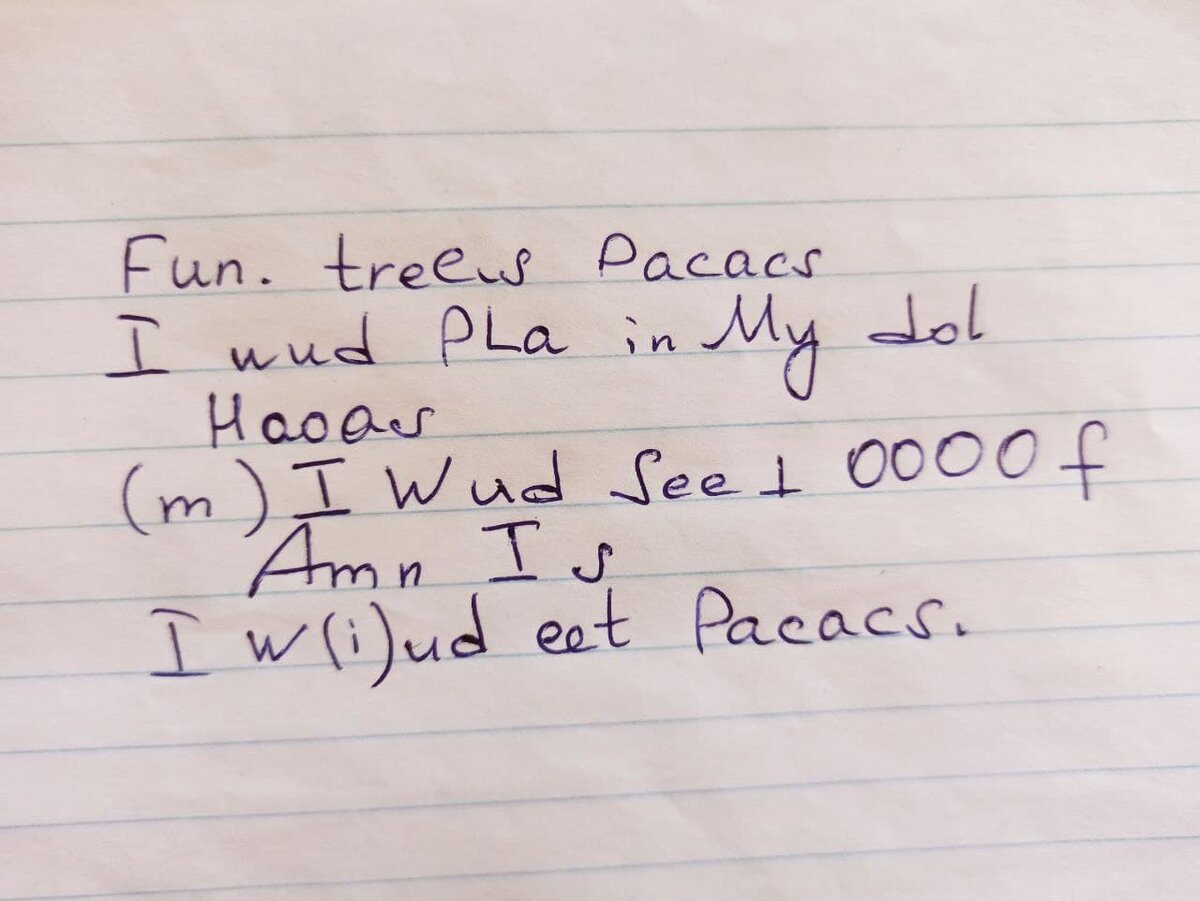 Fun. trees Pacacs
I wud PLa in My dol
Haoas
(m) I Wud See 1 0000 f
Amn Is
I w(i)ud eet Pacacs.